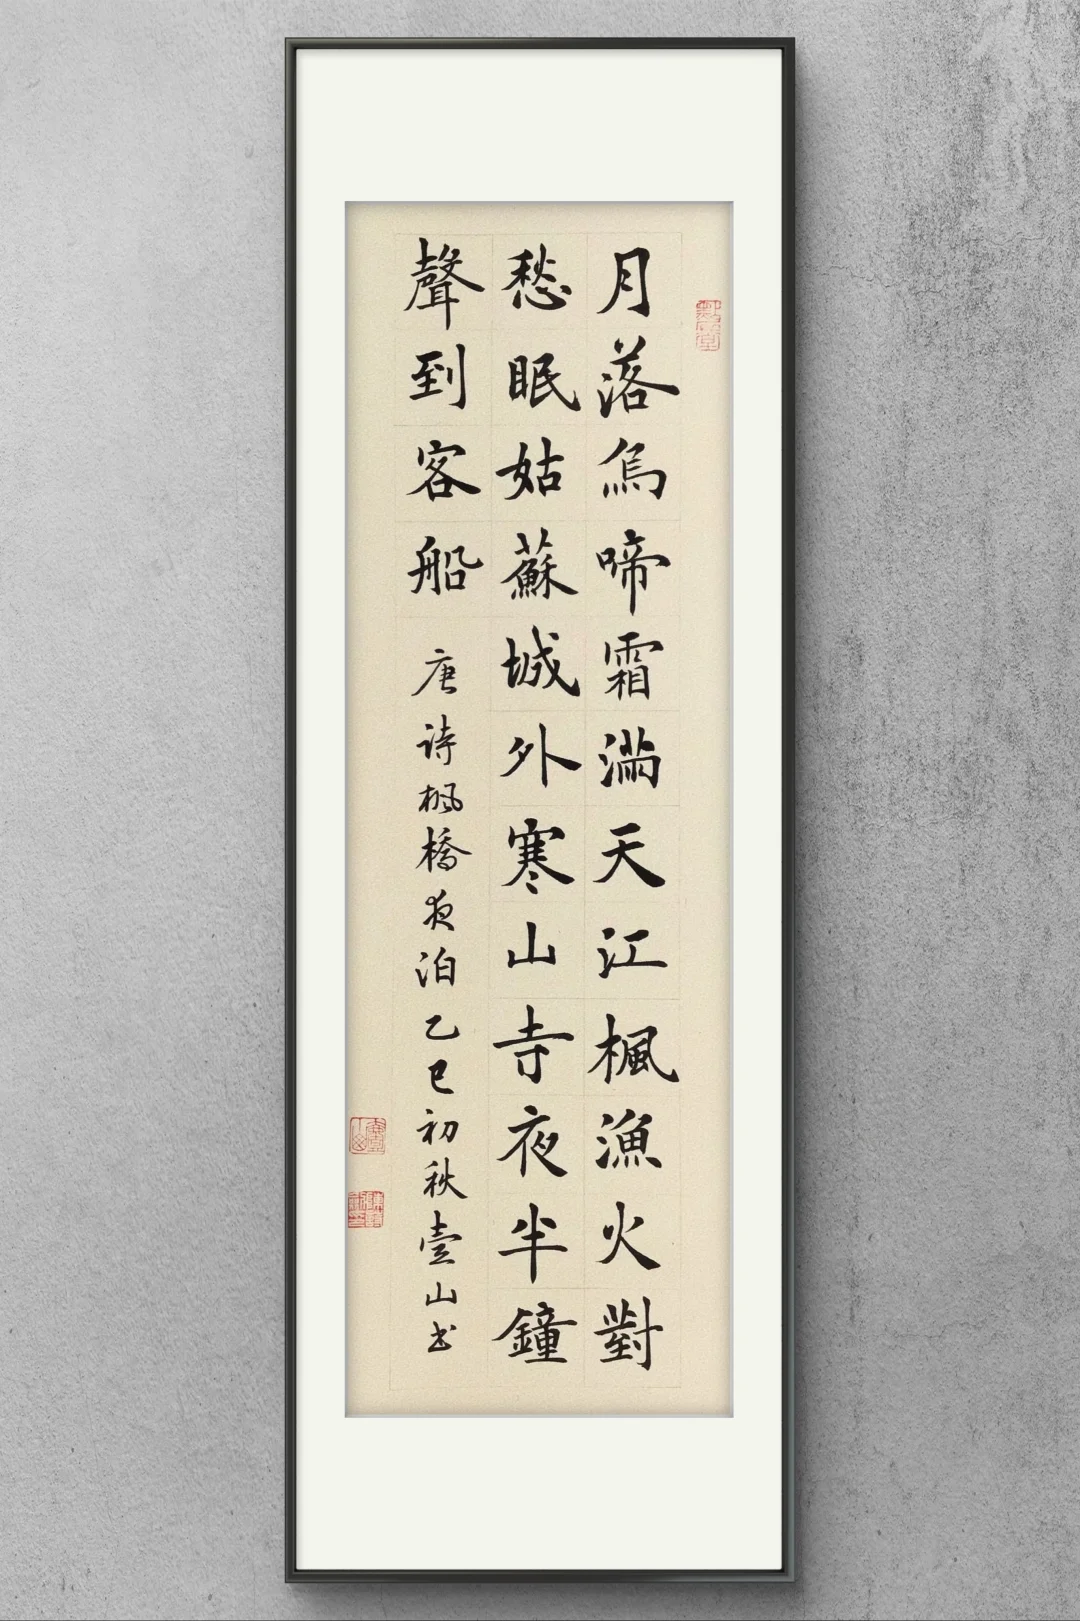 月落烏啼霜滿天江楓漁火對
愁眠姑蘇城外寒山寺夜半鐘
聲到客船
唐詩楓橋夜泊乙巳初秋壹山书